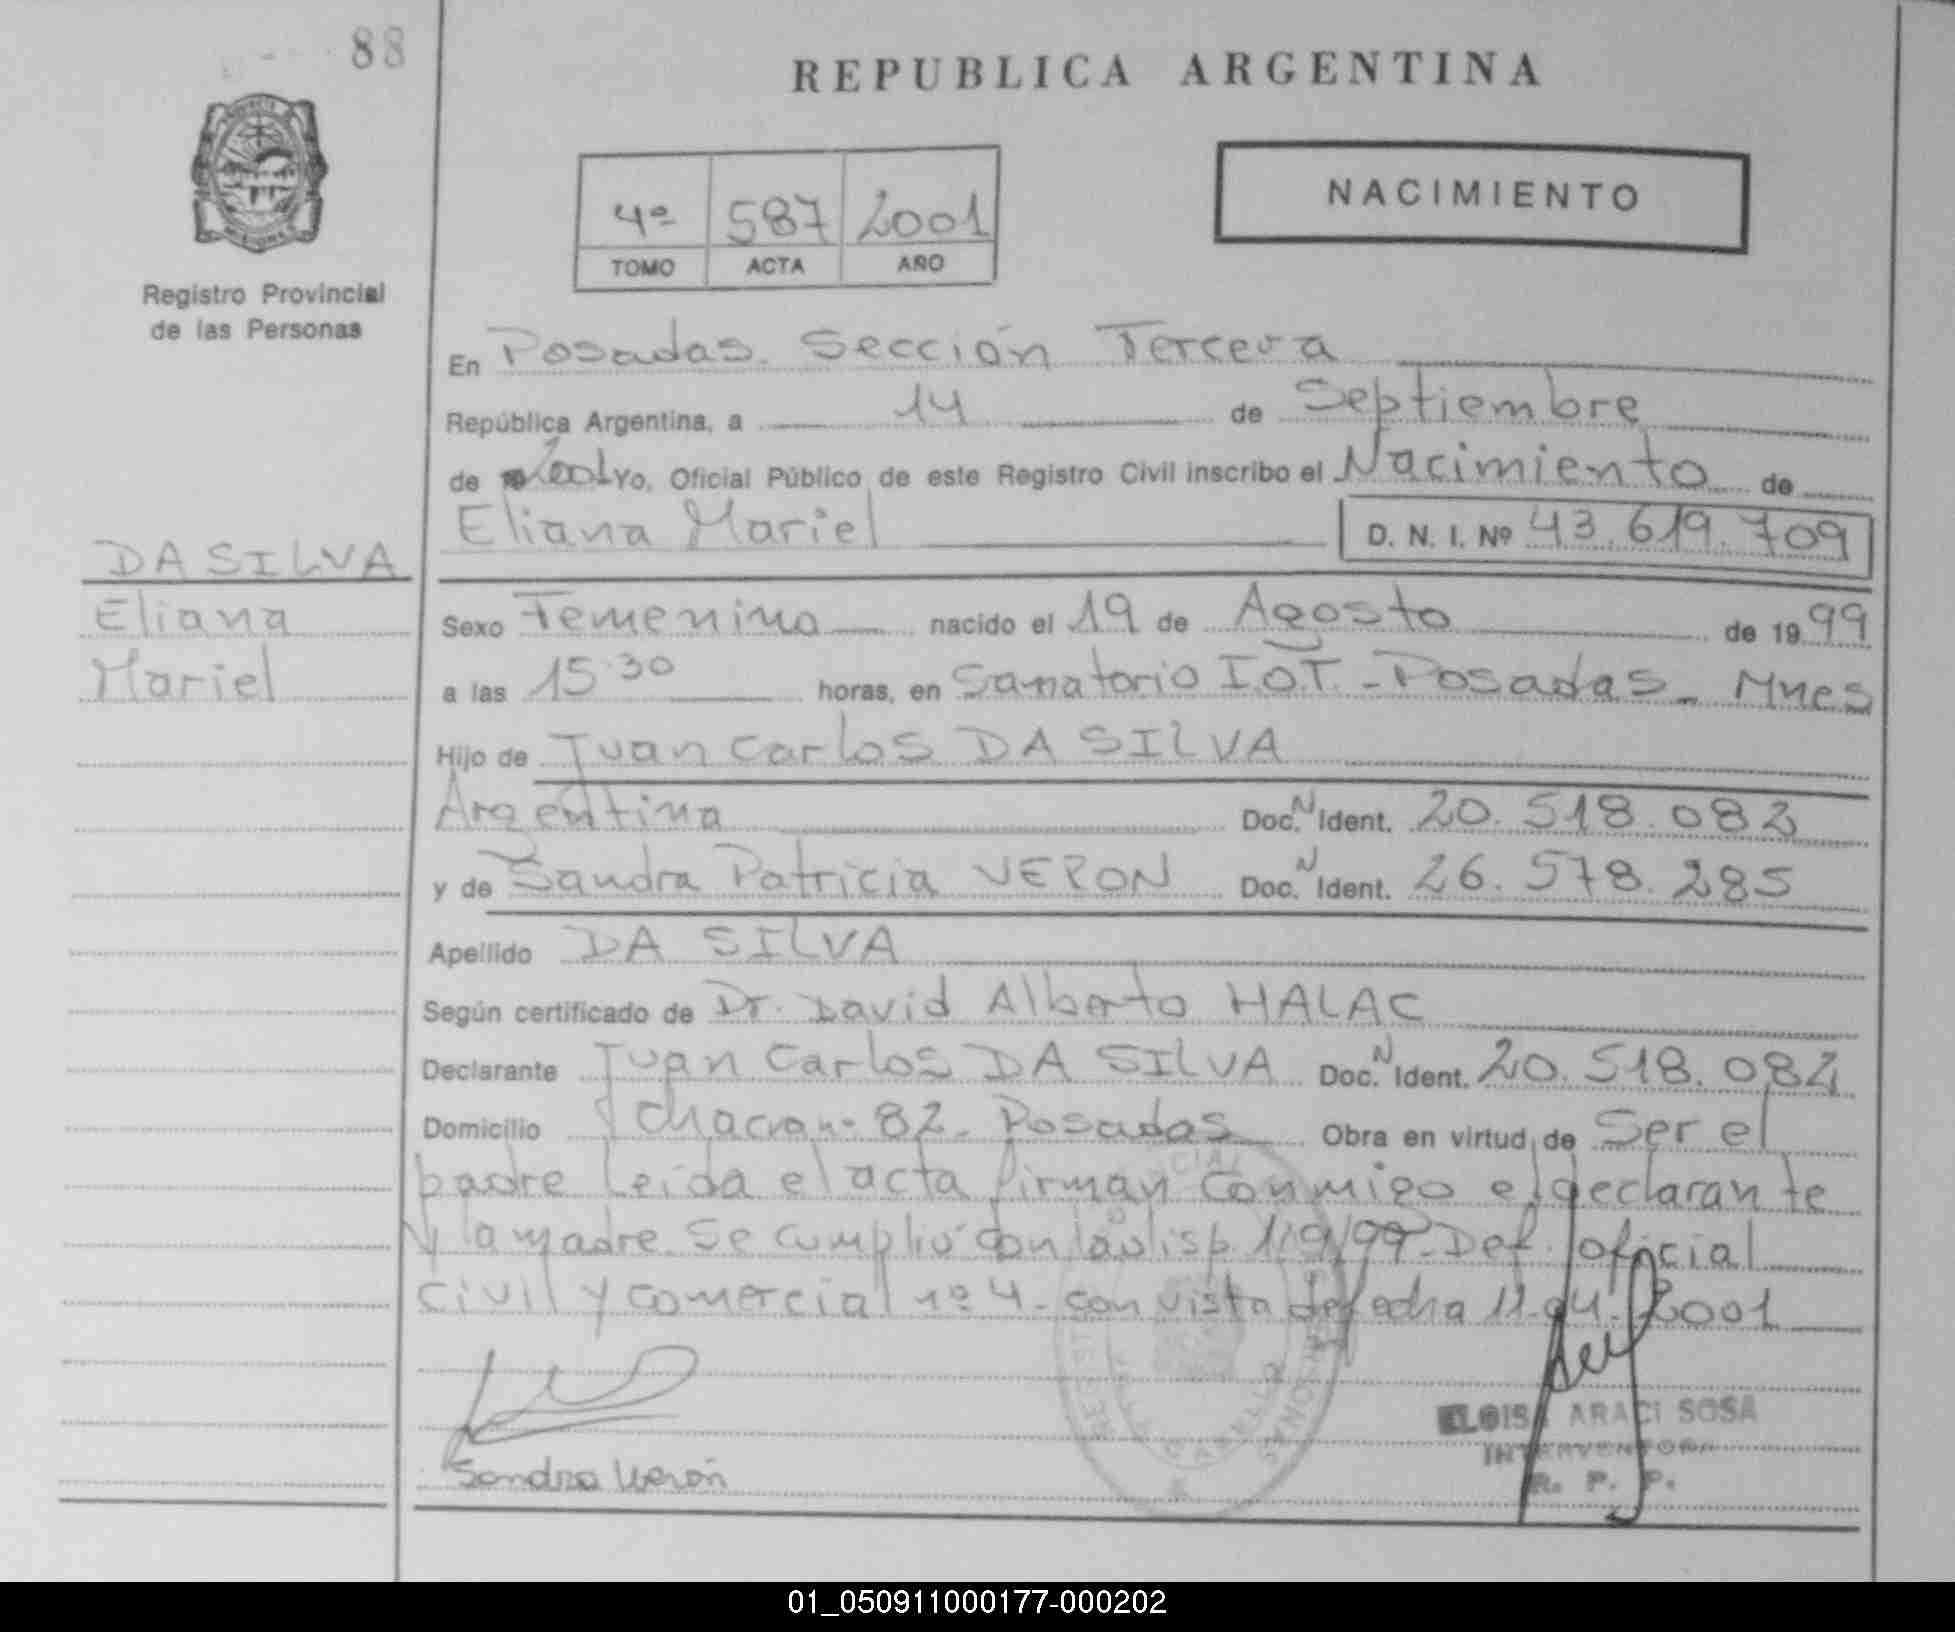 88
REPUBLICA ARGENTINA
NACIMIENTO
4º 587 2001
TOMO ACTA AÑO
Registro Provincial
de las Personas
En Posadas. Sección Tercera
República Argentina, a 14 de Septiembre
de 2001 Yo, Oficial Público de este Registro Civil inscribo el Nacimiento de
Eliana Mariel D. N. I. Nº 43.619.709
DA SILVA
Eliana
Mariel
Sexo Femenino nacido el 19 de Agosto de 1999
a las 15 30 horas, en Sanatorio I.O.T. - Posadas - Mnes
Hijo de Juan Carlos DA SILVA
Argentina Doc. N Ident. 20.518.082
y de Sandra Patricia VERON Doc. N Ident. 26.578.285
Apellido DA SILVA
Según certificado de Dr. David Alberto HALAC
Declarante Juan Carlos DA SILVA Doc. N Ident. 20.518.082
Domicilio chacra nº 82 - Posadas Obra en virtud de Ser el
padre Leida el acta firman conmigo el declarante
y la madre. Se cumplió con 119/99 - Def. oficial
civil y comercial nº 4 - con vista de fecha 11-04-2001
Sandra Verón
ELOISA ARACI SOSA
INTERVENTORA
R. P. P.
01_050911000177-000202